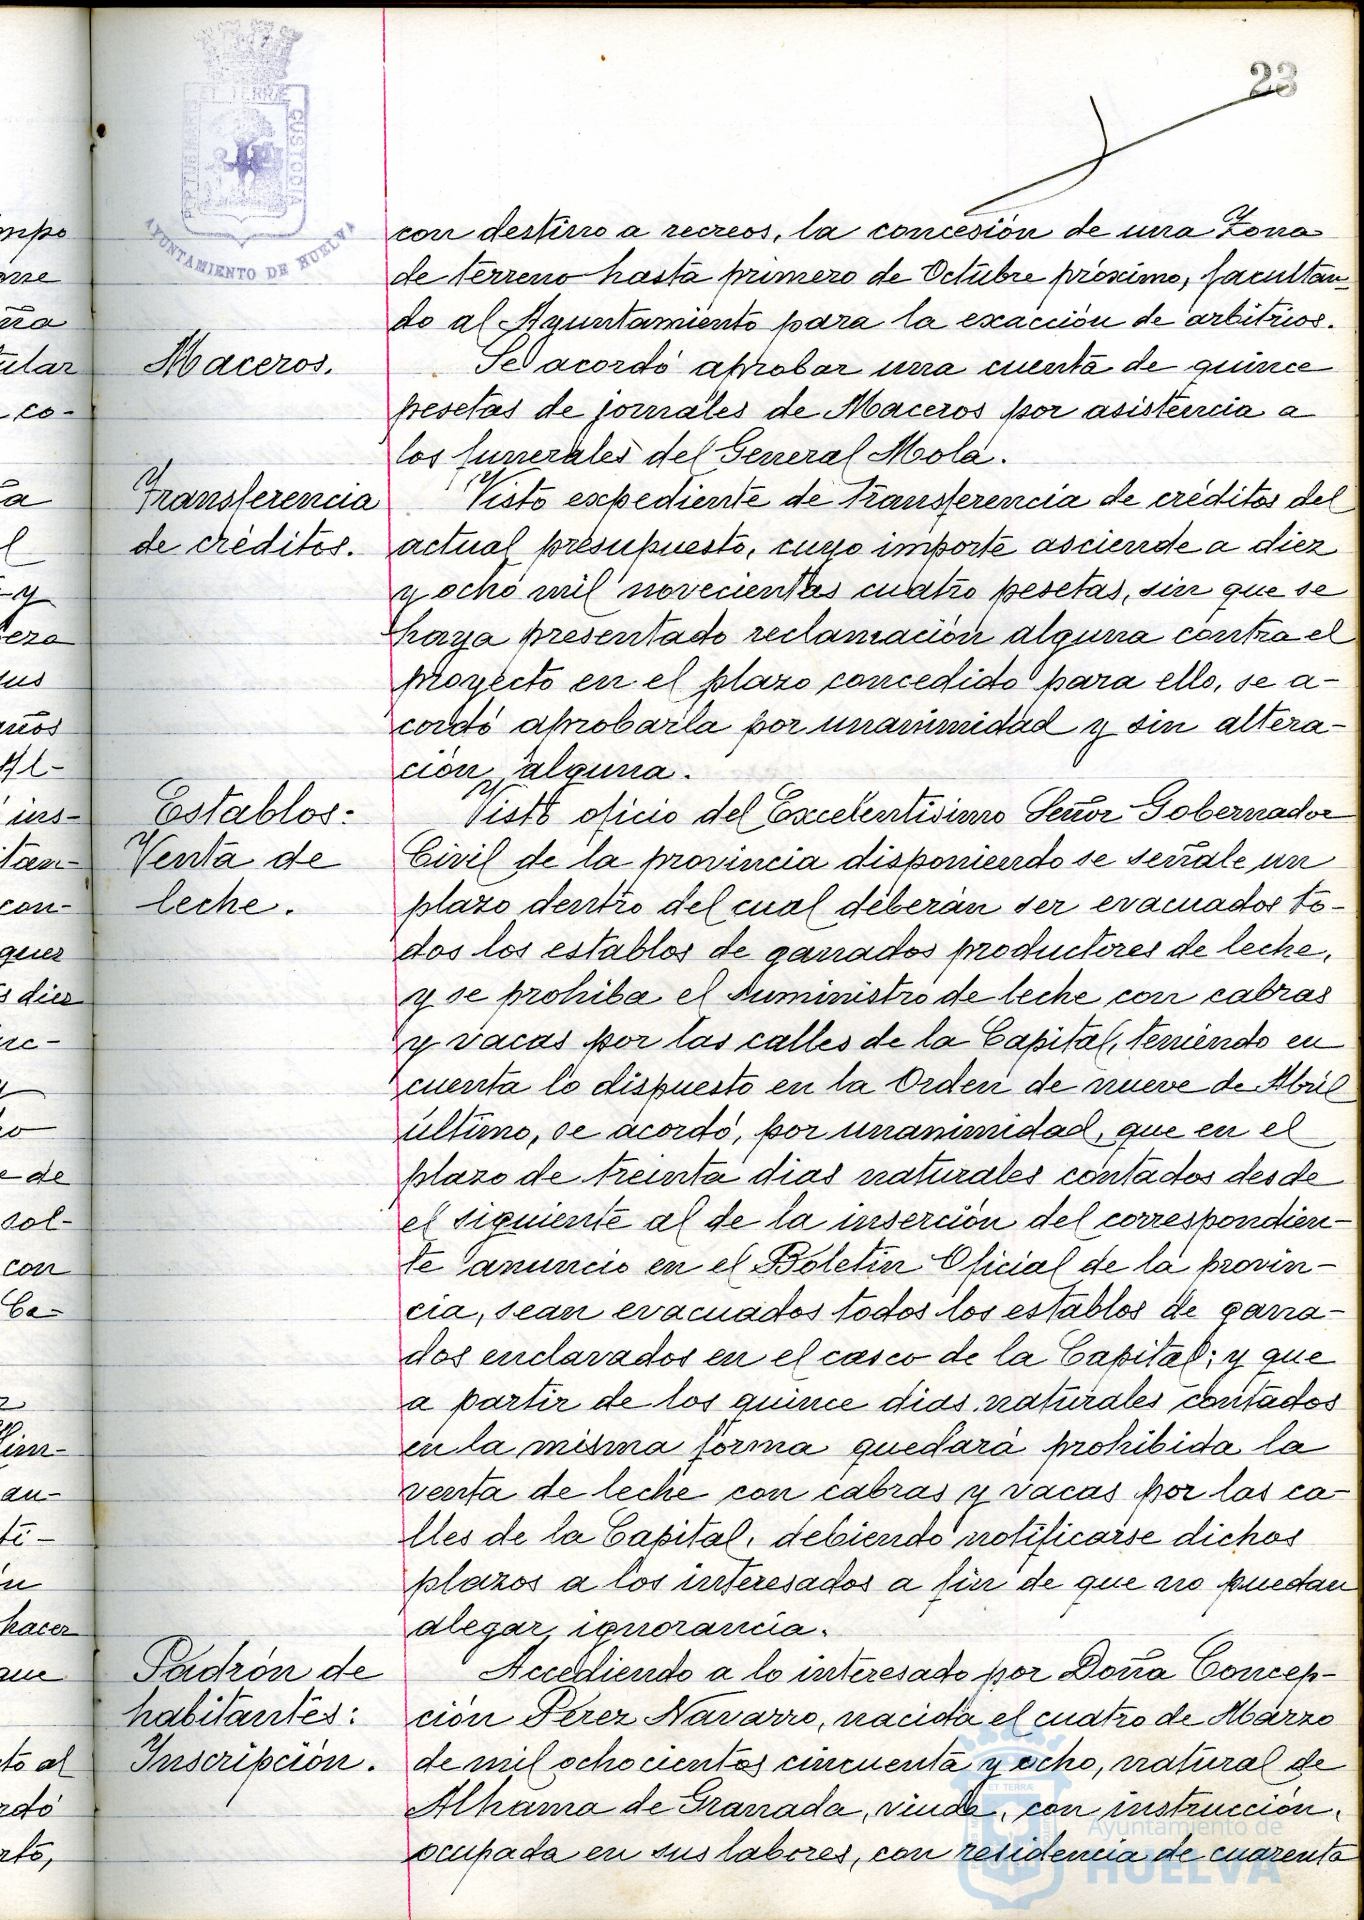 23
ET TERRÆ
PORTUS MARIS
CUSTODIA
AYUNTAMIENTO DE HUELVA
con destino a recreos, la concesión de una Zona
de terreno hasta primero de Octubre próximo, facultan-
do al Ayuntamiento para la exacción de arbitrios.
Maceros.
Se acordó aprobar una cuenta de quince
pesetas de jornales de Maceros por asistencia a
los funerales del General Mola.
Transferencia
de créditos.
Visto expediente de transferencia de créditos del
actual presupuesto, cuyo importe asciende a diez
y ocho mil novecientas cuatro pesetas, sin que se
haya presentado reclamación alguna contra el
proyecto en el plazo concedido para ello, se a-
cordó aprobarla por unanimidad y sin altera-
ción alguna.
Establos:
Venta de
leche.
Visto oficio del Excelentísimo Señor Gobernador
Civil de la provincia disponiendo se señale un
plazo dentro del cual deberán ser evacuados to-
dos los establos de ganados productores de leche,
y se prohiba el suministro de leche con cabras
y vacas por las calles de la Capital, teniendo en
cuenta lo dispuesto en la Orden de nueve de Abril
último, se acordó, por unanimidad, que en el
plazo de treinta dias naturales contados desde
el siguiente al de la inserción del correspondien-
te anuncio en el Boletin Oficial de la provin-
cia, sean evacuados todos los establos de gana-
dos enclavados en el casco de la Capital; y que
a partir de los quince dias naturales contados
en la misma forma quedará prohibida la
venta de leche con cabras y vacas por las ca-
lles de la Capital, debiendo notificarse dichos
plazos a los interesados a fin de que no puedan
alegar ignorancia.
Padrón de
habitantes:
Inscripción.
Accediendo a lo interesado por Doña Concep-
ción Pérez Navarro, nacida el cuatro de Marzo
de mil ochocientos cincuenta y ocho, natural de
Alhama de Granada, viuda, con instrucción,
ocupada en sus labores, con residencia de cuarenta
Ayuntamiento de
HUELVA